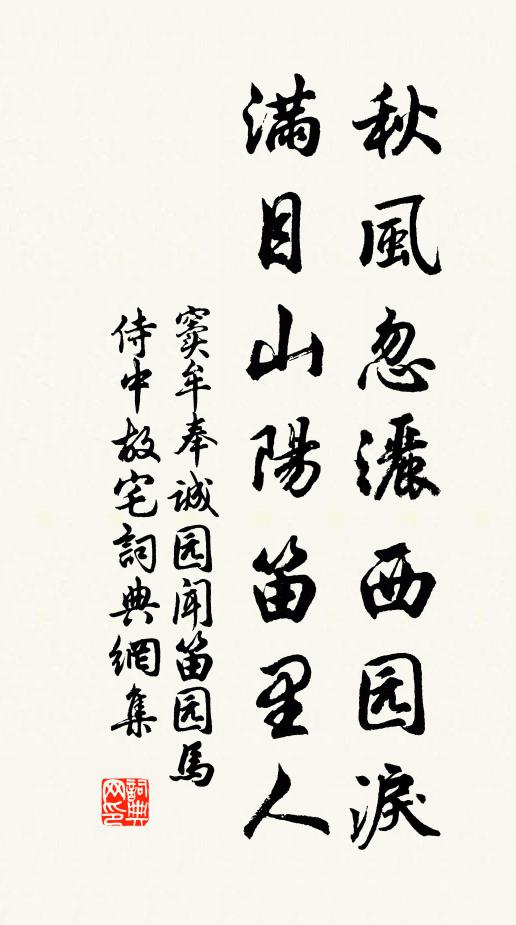 秋風忽灑西园淚
滿目山陽笛里人
窦牟奉诚园闻笛园馬
侍中故宅詞典網集
詞典
网印